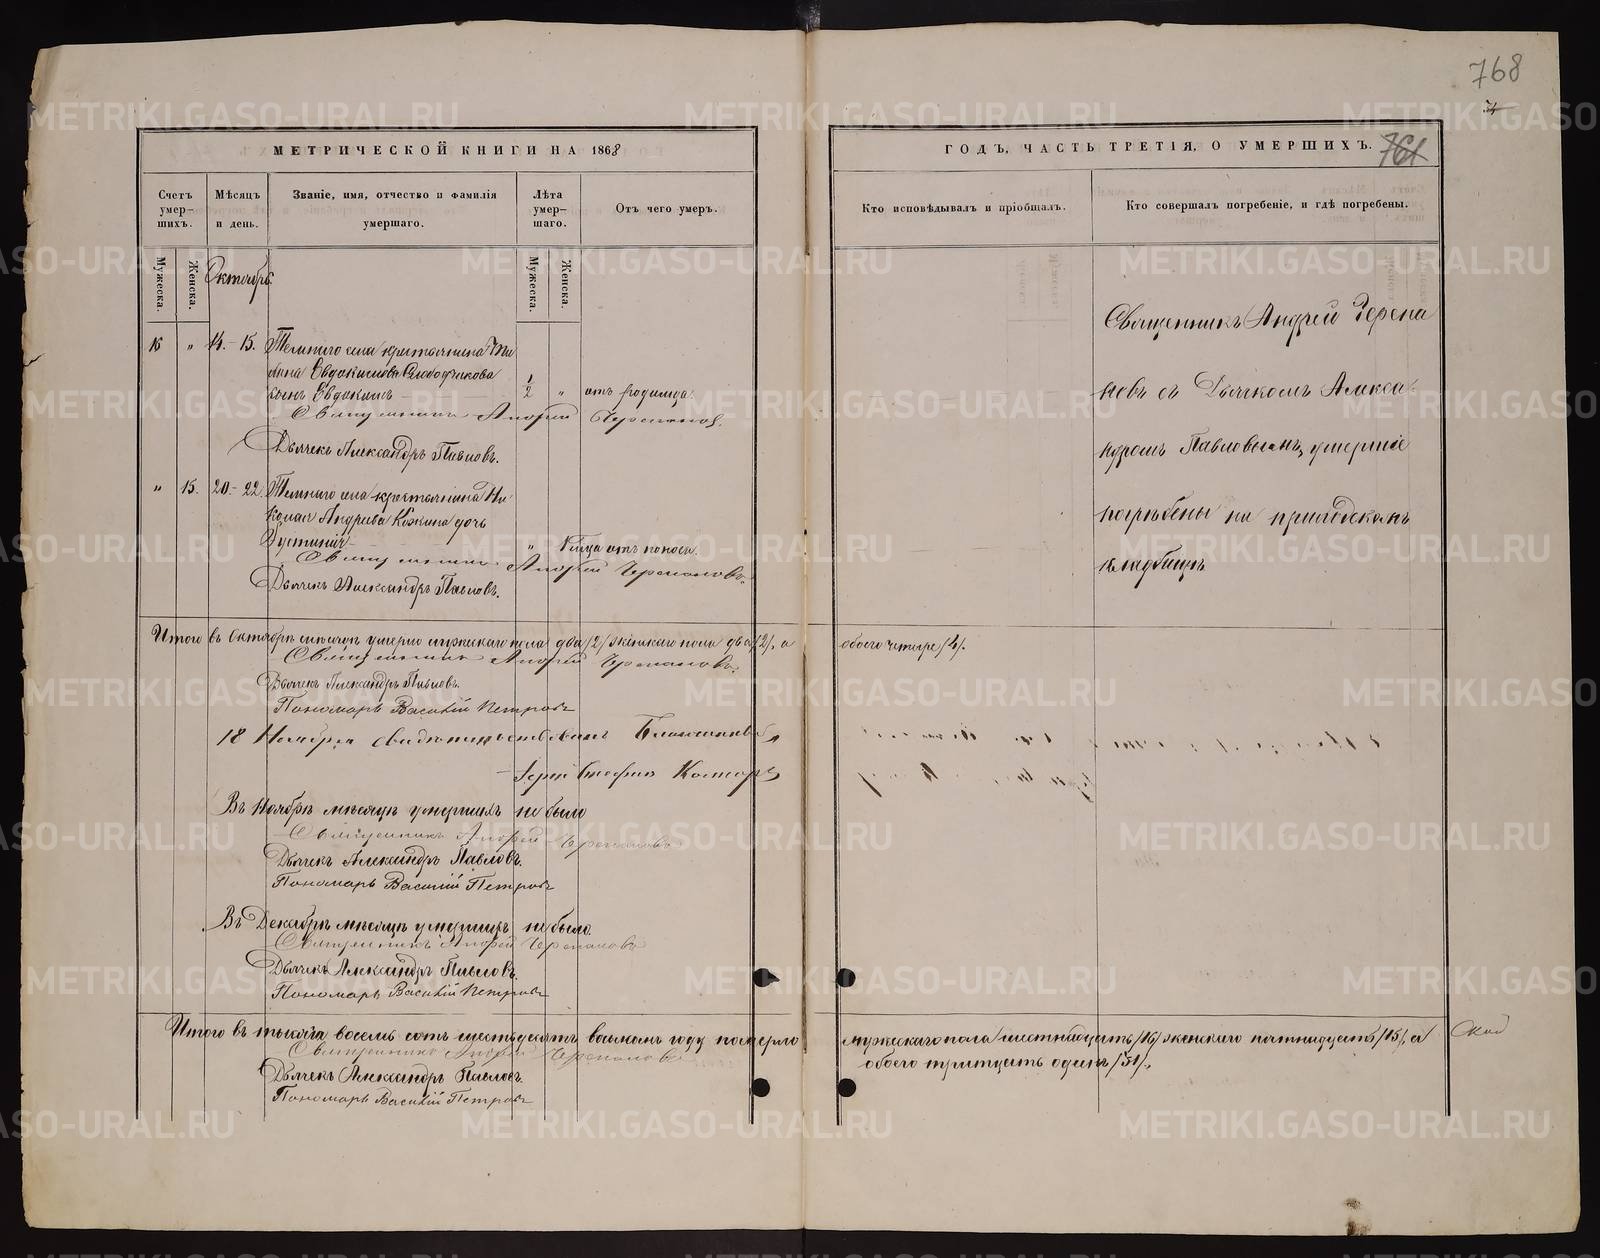 768
МЕТРИЧЕСКОЙ КНИГИ НА 1868
ГОДЪ, ЧАСТЬ ТРЕТІЯ, О УМЕРШИХЪ.
761
Счетъ умер-шихъ.
Мѣсяцъ и день.
Званіе, имя, отчество и фамилія умершаго.
Лѣта умер-шаго.
Отъ чего умеръ.
Кто исповѣдывалъ и пріобщалъ.
Кто совершалъ погребеніе, и гдѣ погребены.
Мужеска.
Женска.
Октябрь.
Мужеска.
Женска.
16 " 14.-15. села крестьянина
Евдокимова
сынъ Евдокимъ 1/2 " отъ родимца.
Священникъ Андрей Черепановъ.
Дьячекъ Александръ Павловъ.
" 15. 20.-22. села крестьянина Ни-
колая Андреева дочь
Іустинія " отъ поноса.
Священникъ Андрей Черепановъ.
Дьячекъ Александръ Павловъ.
Священникъ Андрей Черепа
новъ съ Дьячкомъ Алекса-
ндромъ Павловымъ, умершіе
погребены на приходскомъ
кладбищѣ
Итого въ Октябрѣ мѣсяцѣ умерло мужескаго пола два /2/ женскаго пола два /2/, а обоего четыре /4/.
Священникъ Андрей Черепановъ.
Дьячекъ Александръ Павловъ.
Пономарь Василій Петровъ
18 Ноября свидѣтельствовалъ Благочинный
Іерей Стефанъ
Въ Ноябрѣ мѣсяцѣ умершихъ не было
Священникъ Андрей Черепановъ
Дьячекъ Александръ Павловъ.
Пономарь Василій Петровъ
Въ Декабрѣ мѣсяцѣ умершихъ не было.
Священникъ Андрей Черепановъ
Дьячекъ Александръ Павловъ.
Пономарь Василій Петровъ
Итого въ тысяча восемь сотъ шестьдесятъ восьмомъ году померло мужескаго пола шестнадцать /16/ женскаго пятнадцать /15/, а
обоего тритцать одинъ /31/.
Священникъ Андрей Черепановъ
Дьячекъ Александръ Павловъ.
Пономарь Василій Петровъ
METRIKI.GASO-URAL.RU